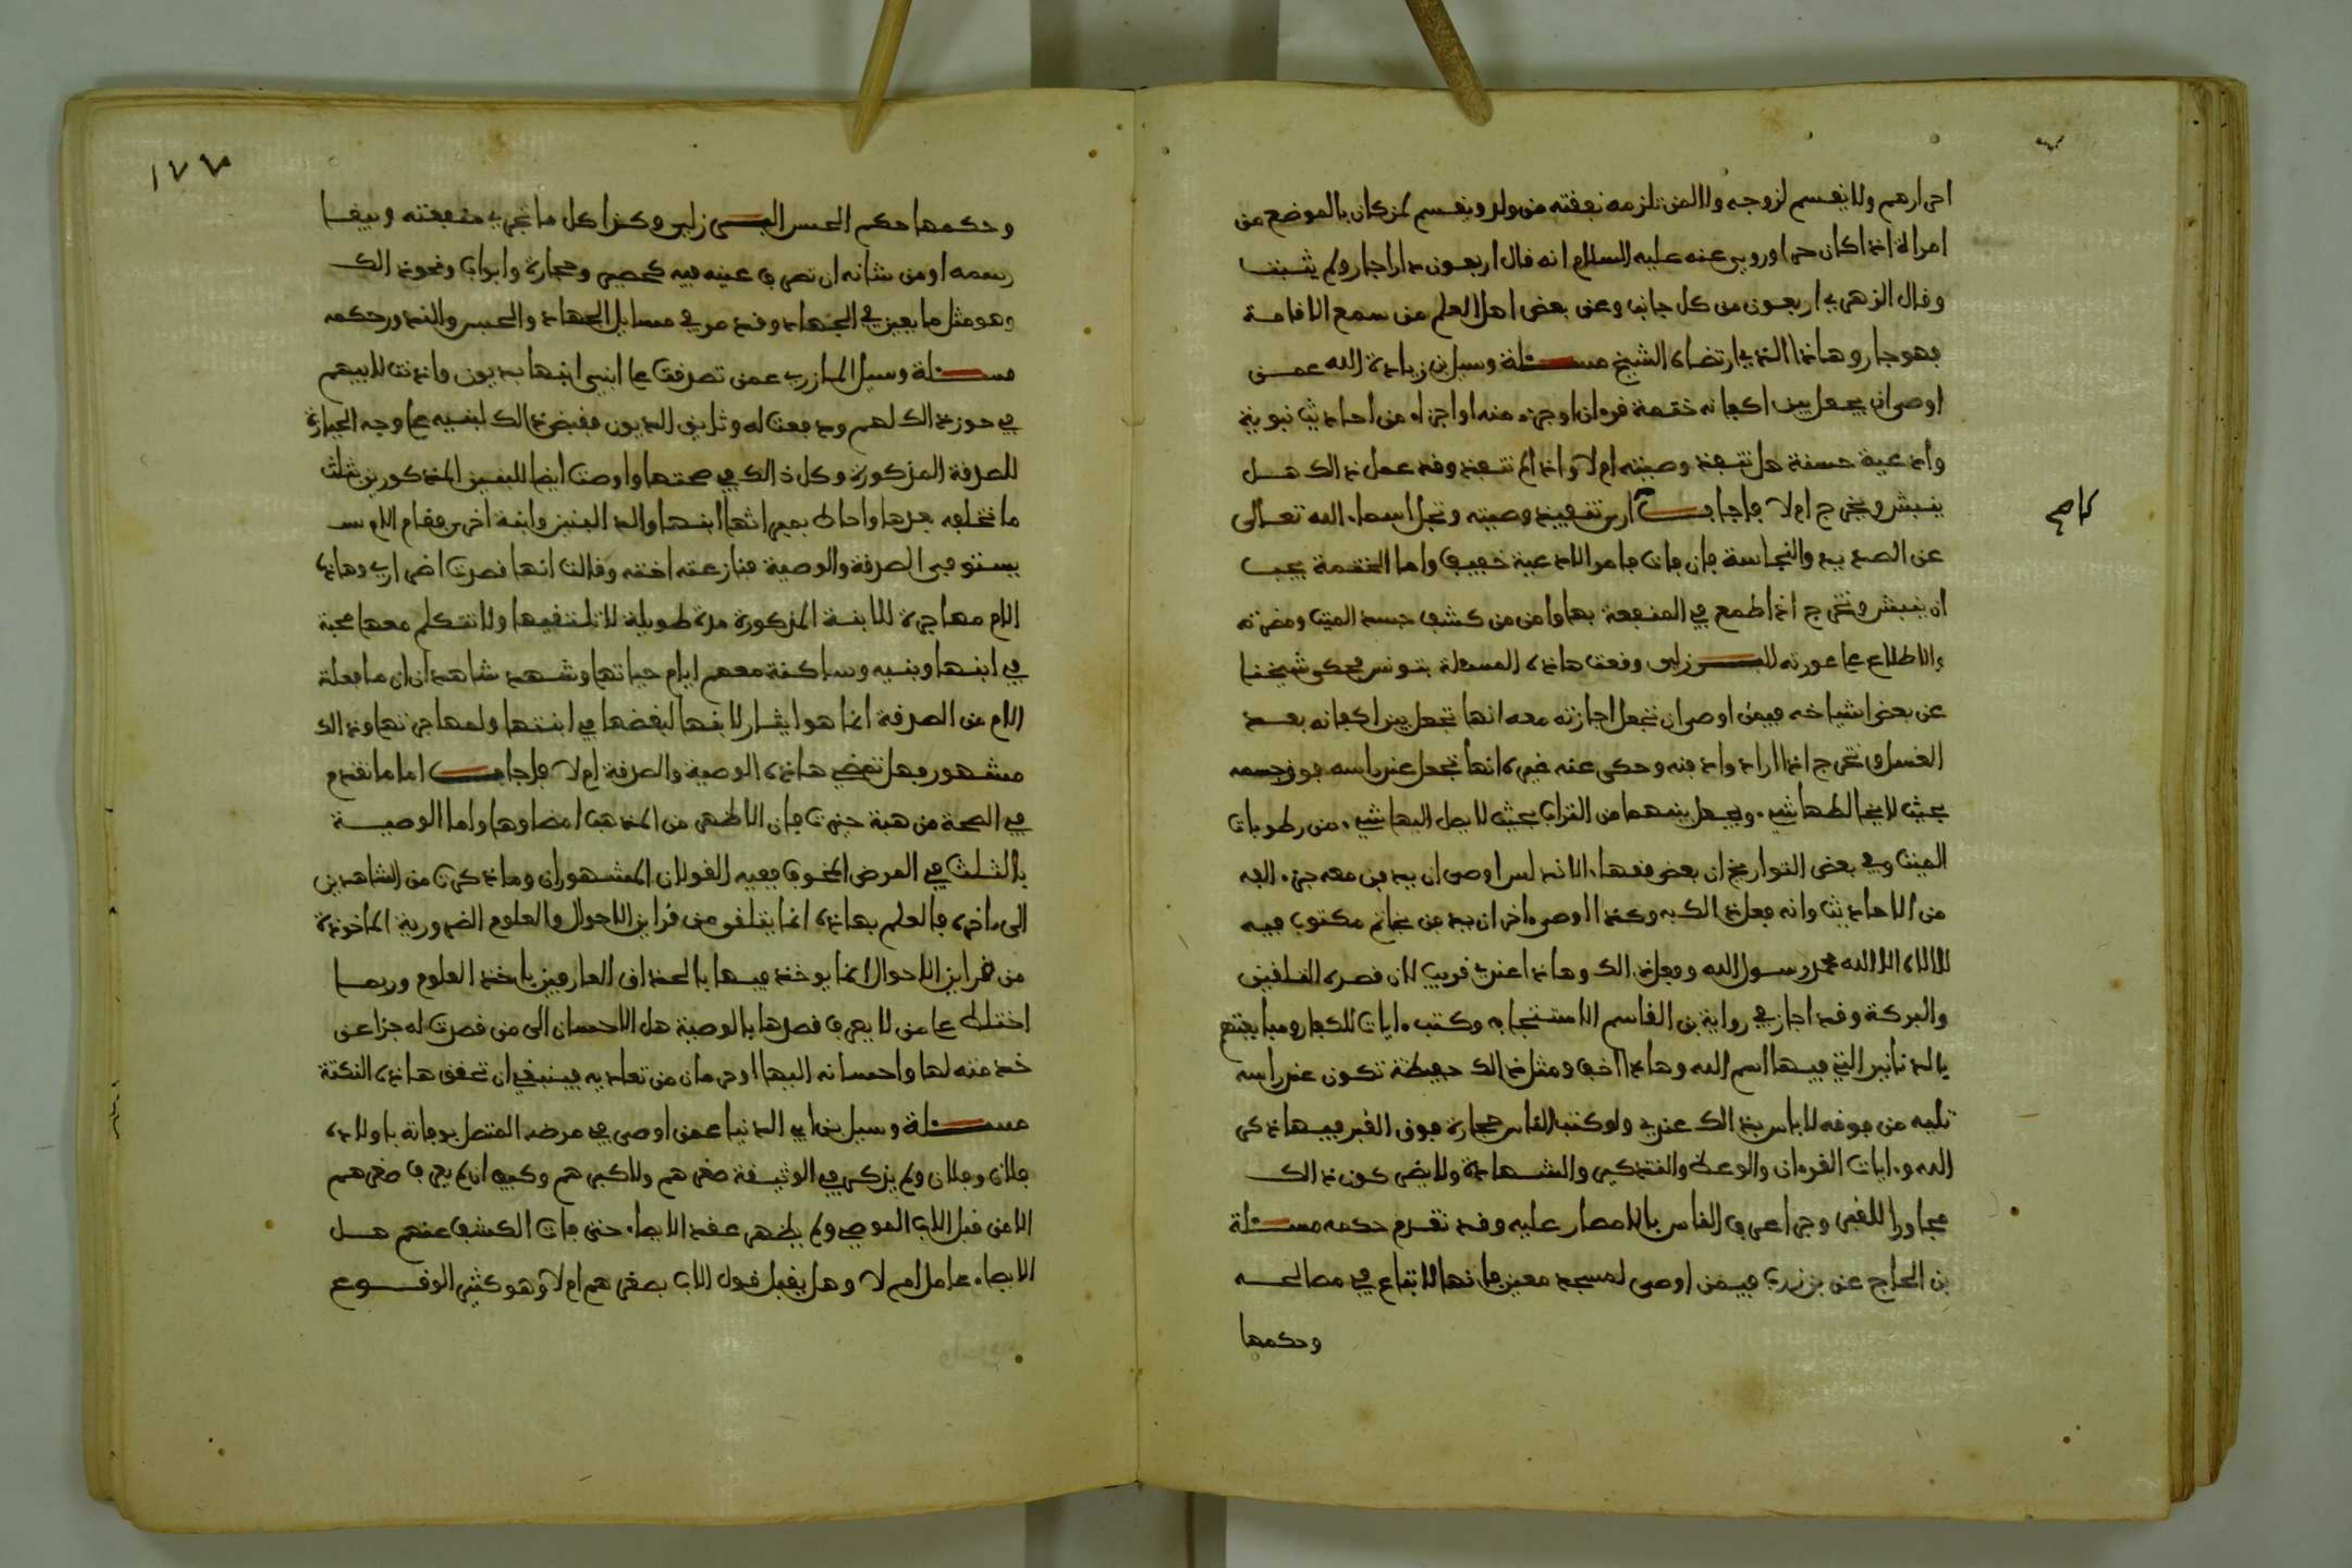 احرارهم ولا يقسم لزوجه ولا لمن تلزمه نفقته من ولد ويقسم لمن كان بالموضع من
امراة اذا كان حرا وروي عنه عليه السلام انه قال اربعون دارا جار ولم يثبت
وقال الزهري اربعون من كل جانب وعن بعض اهل العلم من سمع الاقامة
فهو جار وهاذا الذي ارتضاه الشيخ مسئلة وسيل بن زيادة الله عمن
اوصى ان يجعل بين اكفانه ختمة قرءان او جزء منه او اجزاء من احاديث نبوية
وادعية حسنة هل تنفذ وصيته ام لا واذا لم تنفذ وقد عمل ذالك هل
ينبش ويخرج ام لا فاجاب ارى تنفيذ وصيته وتجل اسماء الله تعالى
عن الصديد والنجاسة فان فات فامر الادعية خفيف واما الختمة يجب
ان ينبش وتخرج اذا طمع في المنفعة بها وامن من كشف جسد الميت ومضرته
والاطلاع على عورته البرزلي وقعت هاذه المسئلة بتونس فحكى شيخنا
عن بعض اشياخه فيمن اوصى ان تجعل اجازته معه انها تجعل بين اكفانه بعد
الغسل وتخرج اذا اراد دفنه وحكى عنه غيره انها تجعل عند راسه فوق جسمه
بحيث لا يخالطها شيء ويجعل بينهما من التراب بحيث لا يصل اليها شيء من رطوبات
الميت وفي بعض التواريخ ان بعض فقهاء الاندلس اوصى ان يدفن معه جزء الفه
من الاحاديث وانه فعل ذالك به وكذا اوصى ءاخر ان يدفن بخاتم مكتوب فيه
لا الاه الا الله محمد رسول الله وفعل ذالك وهاذا عندي قريب لان قصده التلقين
والبركة وقد اجاز في رواية بن القاسم الاستنجا به وكتب ءايات للكفار ومبايعتهم
بالدنانير التي فيها اسم الله وهاذا اخف ومثل ذالك حفيظة تكون عند راسه
تليه من فوقه لا باس بذالك عندي ولو كتب الناس حجارة فوق القبر فيها ذكر
الله وءايات القرءان والوعظ والتذكير والشهادة ولا يضر كون ذالك
مجاورا للقبر وجرا عرف الناس بالامصار عليه وقد تقدم حكمه مسئلة
بن الحاج عن بن زرب فيمن اوصى لمسجد معين فانها لا تباع في مصالحه
وحكمها
١٧٧
وحكمها حكم الحبس البرزلي وكذا كل ما تجرى منفعته ويبقا
رسمه او من شانه ان تصرف عينه فيه كحصير وحجارة وابواب ونحو ذالك
وهو مثل ما يعين في الجهاد وقد مر في مسايل الجهاد والحبس والنذور حكمه
مسئلة وسيل المازري عمن تصدقت على ابني ابنها بديون واذنت لابيهم
في حوز ذالك لهم ودفعت له وثايق الديون فقبض ذالك لبنيه على وجه الحيازة
للصدقة المذكورة وكل ذالك في صحتها واوصت ايضا للبنين المذكورين بثلث
ما تخلفه بعدها واحاط بميراثها ابنها والد البنين وابنة اخرى فقام الاب
يستوفي الصدقة والوصية فنازعته اخته وقالت انها قصرت اضراري وهاذه
الام مهاجرة للابنة المذكورة مدة طويلة لا تلتقيها ولا تتكلم معها محبة
في ابنها وبنيه وساكنة معهم ايام حياتها وشهد شاهدان ان ما فعلة
الام من الصدقة انما هو ايثار لابنها لبغضها في ابنتها ولمهاجرتها وذالك
مشهور فهل تمضي هاذه الوصية والصدقة ام لا فاجاب اما ما تقدم
في الصحة من هبة حيزت فان الاظهر من المذهب امضاوها واما الوصية
بالثلث في المرض المخوف ففيه القولان المشهوران وما ذكرت من الشاهدين
الى ءاخره فالعلم بهاذه انما يتلقى من قراين الاحوال والعلوم الضرورية الماخوذة
من قراين الاحوال انما يوخذ فيها بالحذاق العارفين باخذ العلوم وربما
اختلط على من لا يعرف قصدها بالوصية هل الاحسان الى من قصرت له جزا عن
خدمته لها واحسانه اليها او حرمان من تعاديه فينبغي ان تحقق هاذه النكتة
مسئلة وسيل بن ابي الدنيا عمن اوصى في مرضه المتصل بوفاته باولاده
فلان وفلان ولم يذكر في الوثيقة صغرهم ولا كبرهم وكيف ان لم يعرف صغرهم
الا من قبل الاب الموصي ولم يظهر عقد الايصاء حتى فات الكشف عنهم هل
الايصاء عامل ام لا وهل يقبل قول الاب بصغرهم ام لا وهو كثير الوقوع